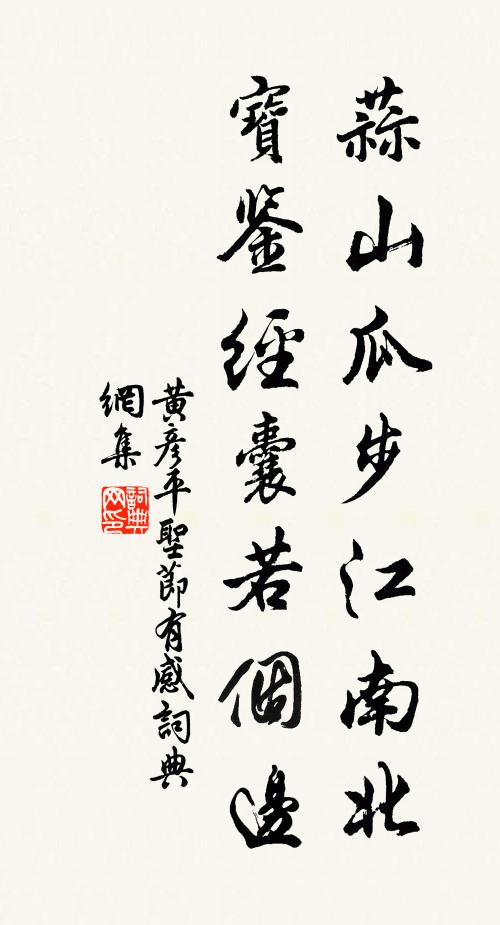 蒜山瓜步江南北
寶鉴經囊若個邊
黃彦平聖節有感詞典
網集
詞典
网印